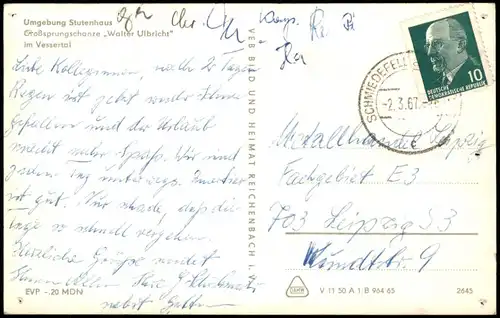 Umgebung Stutenhaus
Großsprungschanze „Walter Ulbricht"
im Vessertal
Liebe Kolleginnen, nach 2 Tagen
Regen ist jetzt wieder Schnee
gefallen und der Urlaub
macht wieder Spass. Wir sind
jeden Tag unterwegs. Quartier
ist gut. Nur schade, daß die
Tage so schnell vergehen.
Herzliche Grüße sendet
Ihnen allen Ihre
nebst Gatten
EVP -.20 MDN
VEB BILD UND HEIMAT REICHENBACH I. V.
SCHMIEDEFELD
-2.3.67
10
DEUTSCHE
DEMOKRATISCHE REPUBLIK
Metallhandel Leipzig
Fachgebiet E3
703 Leipzig S3
Wundtstr. 9
V 11 50 A 1/B 964 65
2645